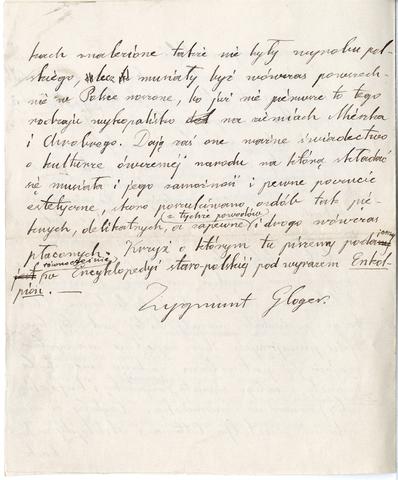 kach znalezione także nie były wyrobu pol-
skiego, lecz musiały być wówczas powszech-
nie w Polsce noszone, bo już nie pierwsze to tego
rodzaju wykopalisko na ziemiach Mieszka
i Chrobrego. Dają zaś one ważne świadectwo
o kulturze ówczesnej narodu na którą składać
się musiała i jego zamożność i pewne poczucie
estetyczne, skoro poszukiwano ozdób tak pię-
knych, delikatnych, a zapewne (z tychże powodów) i drogo wówczas
płaconych. Krzyż o którym tu piszemy podaję
równocześnie w Encyklopedyi staro-polskiej pod wyrazem Enkol-
pion. —
Zygmunt Gloger.